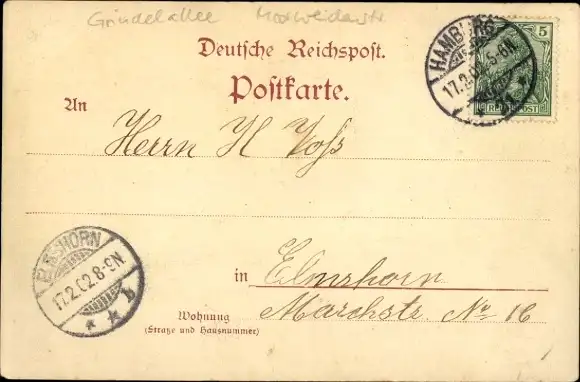 Grindelallee Moorweidenstr.
Deutsche Reichspost.
Postkarte.
HAMBURG
17.2.02.5-6N
5
REICHSPOST
An
Herrn H Voß
ELMSHORN
17.2.02.8-9N
* * b
in Elmshorn
Wohnung Marchstr. No 16
(Straße und Hausnummer)